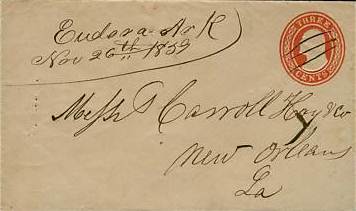 Eudora Ark
Nov 26th 1859
THREE
CENTS
Messrs Carroll Hoy & Co
New Orleans
La